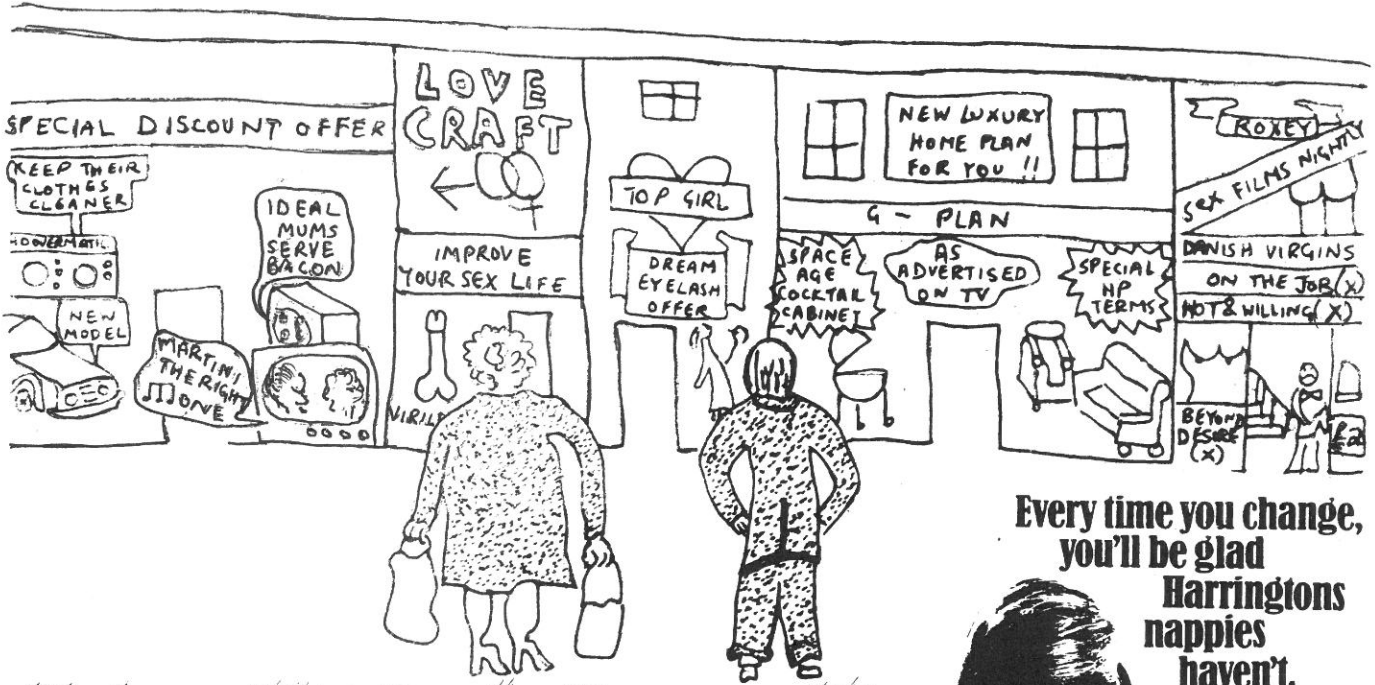 SPECIAL DISCOUNT OFFER
KEEP THEIR
CLOTHES
CLEANER
HOOVERMATIC
NEW
MODEL
MARTINI
THE RIGHT
ONE
IDEAL
MUMS
SERVE
BACON
LOVE
CRAFT
IMPROVE
YOUR SEX LIFE
TOP GIRL
DREAM
EYELASH
OFFER
NEW LUXURY
HOME PLAN
FOR YOU !!
G - PLAN
SPACE
AGE
COCKTAIL
CABINET
AS
ADVERTISED
ON TV
SPECIAL
HP
TERMS
ROXEY
SEX FILMS NIGHTLY
DANISH VIRGINS
ON THE JOB (X)
HOT & WILLING (X)
BEYOND
DESIRE
(X)
Every time you change,
you'll be glad
Harringtons
nappies
haven't.